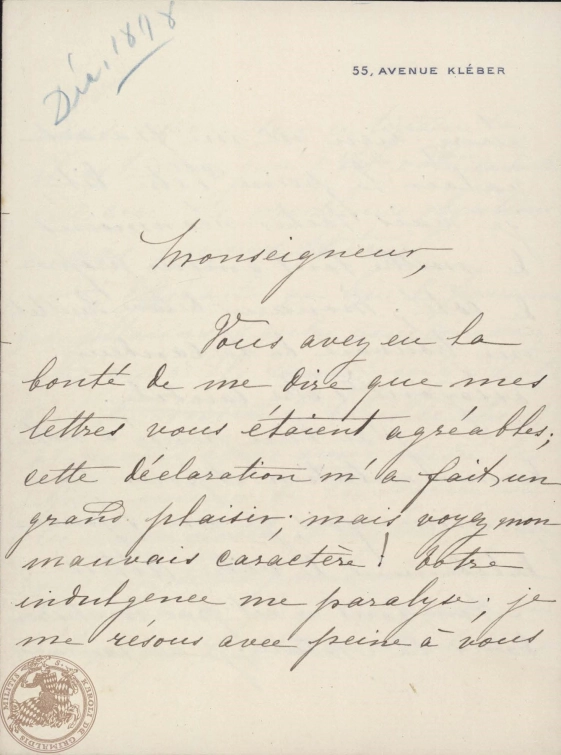 Déc. 1898
55, AVENUE KLÉBER
Monseigneur,
Vous avez eu la
bonté de me dire que mes
lettres vous étaient agréables;
cette déclaration m'a fait un
grand plaisir; mais voyez mon
mauvais caractère! Votre
indulgence me paralyse; je
me résous avec peine à vous